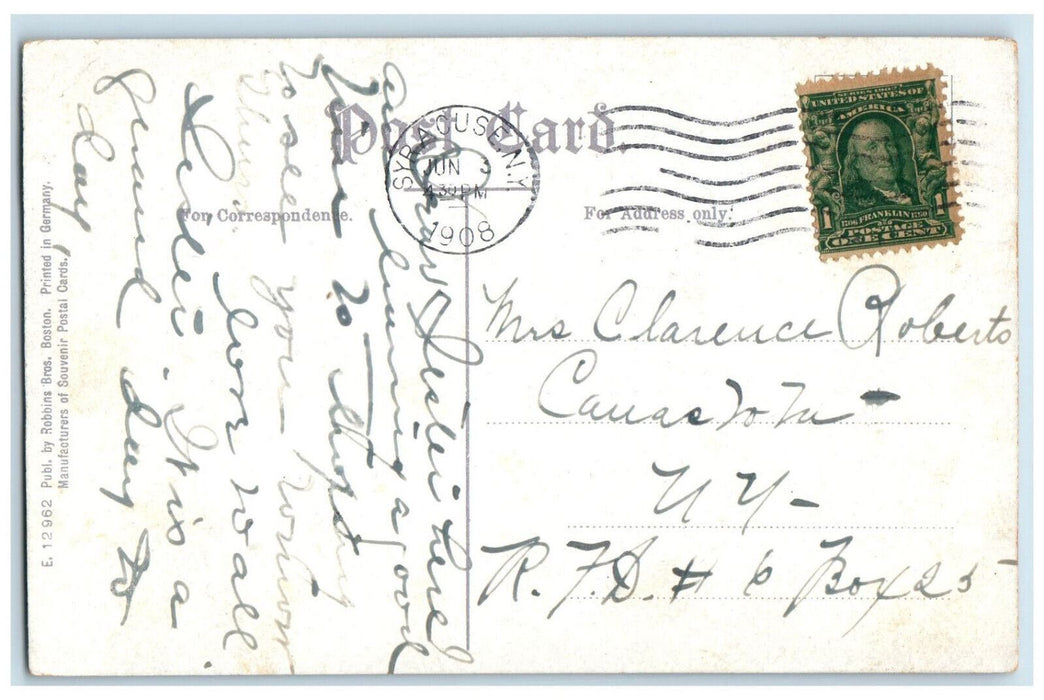 Post Card.
For Correspondence.
For Address only.
SYRACUSE, N.Y.
JUN 3
4 30 PM
1908
SERIES 1902
UNITED STATES OF
AMERICA
1706 FRANKLIN 1790
POSTAGE
1 ONE CENT 1
here
having a good
time to-
to see you
Love to all
Helen. It is a
grand day to
day
Mrs Clarence Roberts
Canastota
N Y-
R. F. D. # 6 Box 25
E. 12962 Publ. by Robbins Bros. Boston. Printed in Germany.
Manufacturers of Souvenir Postal Cards.